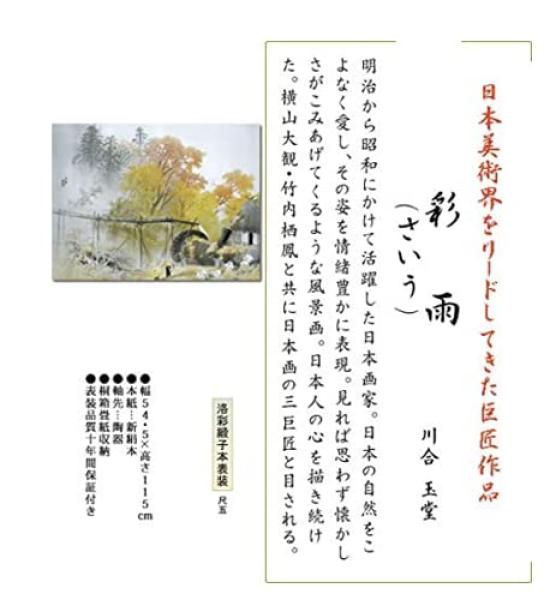 日本美術界をリードしてきた巨匠作品
彩雨
(さいう)
川合 玉堂
明治から昭和にかけて活躍した日本画家。日本の自然をこ
よなく愛し、その姿を情緒豊かに表現。見れば思わず懐かし
さがこみあげてくるような風景画。日本人の心を描き続け
た。横山大観・竹内栖鳳と共に日本画の三巨匠と目される。
洛彩緞子本表装 尺五
●幅54・5×高さ115cm
●本紙…新絹本
●軸先…陶器
●桐箱畳紙収納
●表装品質十年間保証付き